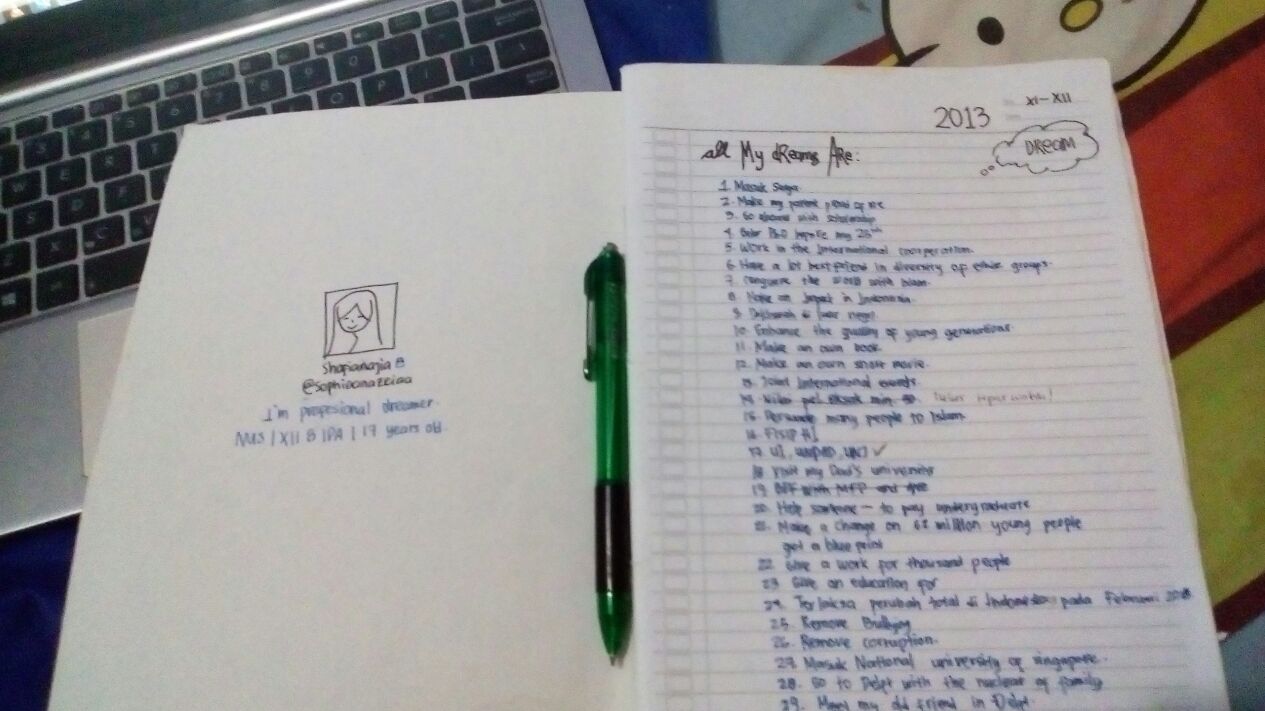 Shafianajia B
@sophieanazeiaa
I'm profesional dreamer.
NUS | XII B IPA | 17 years old.
2013
XI-XII
DREAM
all My dReams Are:
1. Masuk
2. Make my parent proud of me
3. Go abroad with scholarship
4. Gelar PhD before my 25th
5. Work in the International cooperation.
6. Have a lot best friend in diversity of ethic groups.
7. the world with Islam.
8. Make an Impact in Indonesia.
9. Dakwah di luar negri
10. Enhance the quality of young generations.
11. Make an own book
12. Make an own short movie.
13. Joint International events.
14. Nilai min 90.
15. Persuade many people to Islam.
16. FISIP HI
17. UI, UNPAD, UNJ ✓
18. Visit my Dad's university
19. BFF with MFP and
20. Help someone - to pay undergraduate
21. Make a change on 62 million young people
get a blue print
22. Give a work for thousand people
23. Give an education for
24. perubah total di Indonesia pada Februari
25. Remove Bullying
26. Remove corruption.
27. Masuk National university of singapore.
28. Go to Delft with the nuclear of family
29. my old friend in Delft.